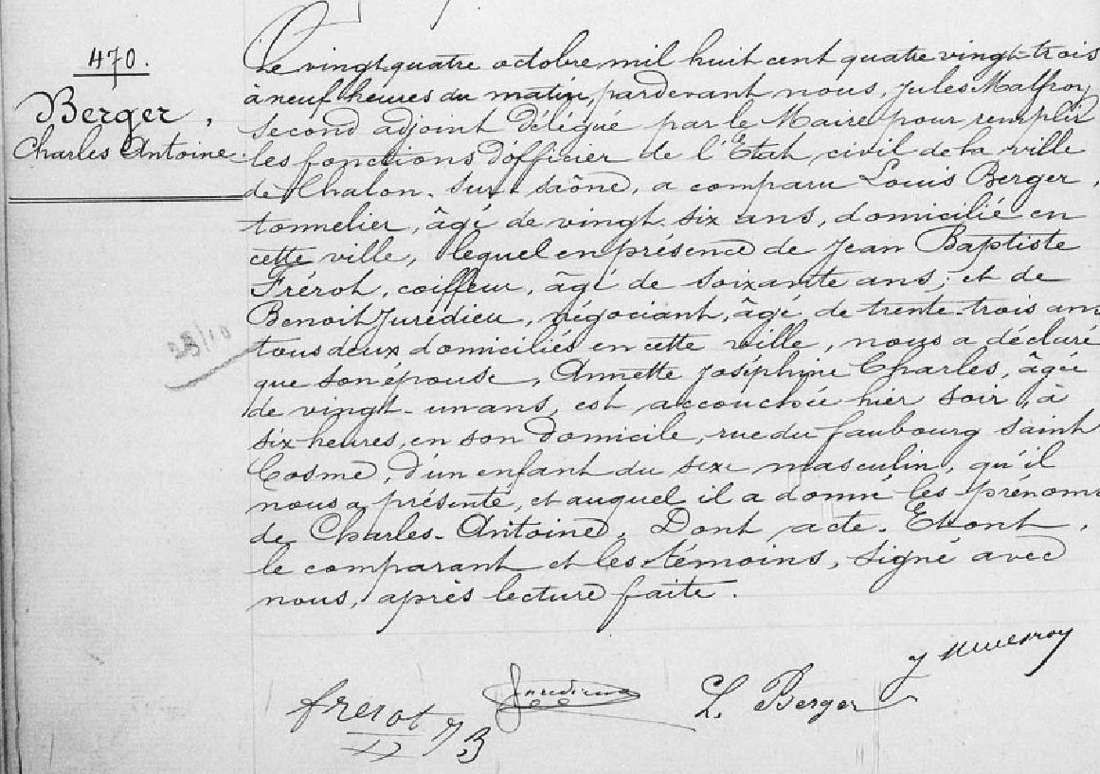 470.
Berger,
Charles Antoine.
Le vingt quatre octobre mil huit cent quatre vingt-trois
à neuf heures du matin, pardevant nous, Jules Malfroy
second adjoint délégué par le Maire pour remplir
les fonctions d'officier de l'Etat civil de la ville
de Chalon-sur-Saône, a comparu Louis Berger,
tonnelier, âgé de vingt-six ans, domicilié en
cette ville, lequel en présence de Jean Baptiste
Frérot, coiffeur, âgé de soixante ans; et de
Benoit Jurédieu, négociant, âgé de trente-trois ans
tous deux domiciliés en cette ville, nous a déclaré
que son épouse, Annette Joséphine Charles, âgée
de vingt-un ans, est accouchée hier soir, à
six heures, en son domicile, rue du faubourg saint
Cosme, d'un enfant du sexe masculin, qu'il
nous a présenté, et auquel il a donné les prénoms
de Charles-Antoine. Dont acte. Et ont,
le comparant et les témoins, signé avec
nous, après lecture faite.
28/10
frerot JB
Juredieu
L. Berger
J Malfroy